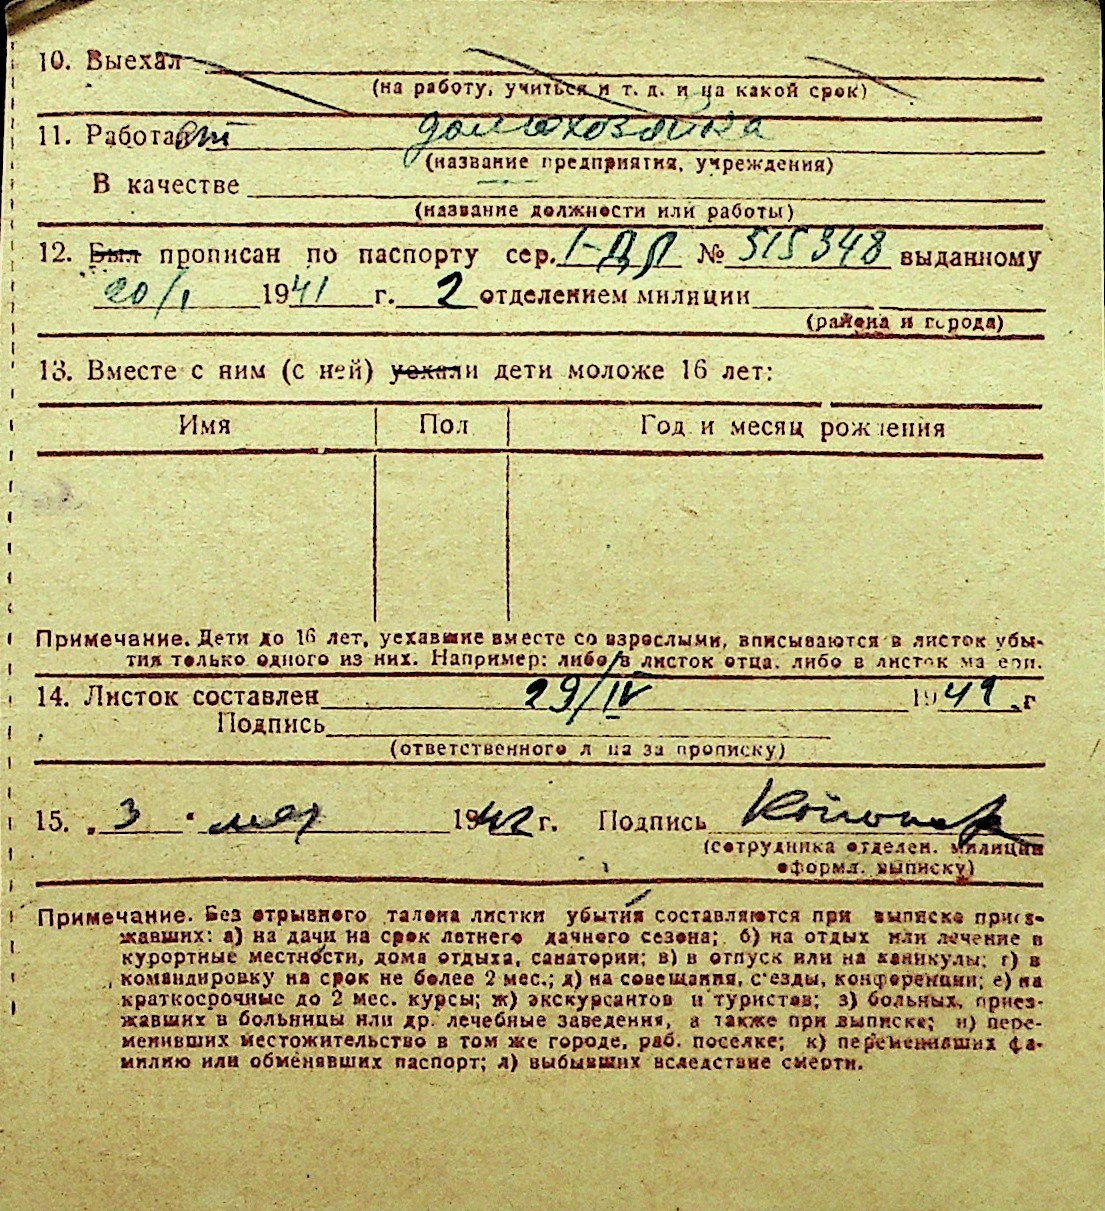 10. Выехал
(на работу, учиться и т. д. и на какой срок)
11. Работает домохозяйка
(название предприятия, учреждения)
В качестве
(название должности или работы)
12. Был прописан по паспорту сер. I-ДЛ № 515348 выданному
20/I 1941 г. 2 отделением милиции
(района и города)
13. Вместе с ним (с ней) уехали дети моложе 16 лет:
Имя Пол Год и месяц рождения
Примечание. Дети до 16 лет, уехавшие вместе со взрослыми, вписываются в листок убы-
тия только одного из них. Например: либо в листок отца, либо в листок матери.
14. Листок составлен 29/IV 1942 г
Подпись
(ответственного лица за прописку)
15. „3" мая 1942 г. Подпись
(сотрудника отделен. милиции
оформл. выписку)
Примечание. Без отрывного талона листки убытия составляются при выписке приез-
жавших: а) на дачи на срок летнего дачного сезона; б) на отдых или лечение в
курортные местности, дома отдыха, санатории; в) в отпуск или на каникулы; г) в
командировку на срок не более 2 мес.; д) на совещания, с'езды, конференции; е) на
краткосрочные до 2 мес. курсы; ж) экскурсантов и туристов; з) больных, приез-
жавших в больницы или др. лечебные заведения, а также при выписке; и) пере-
менивших местожительство в том же городе, раб. поселке; к) переменивших фа-
милию или обменявших паспорт; л) выбывших вследствие смерти.